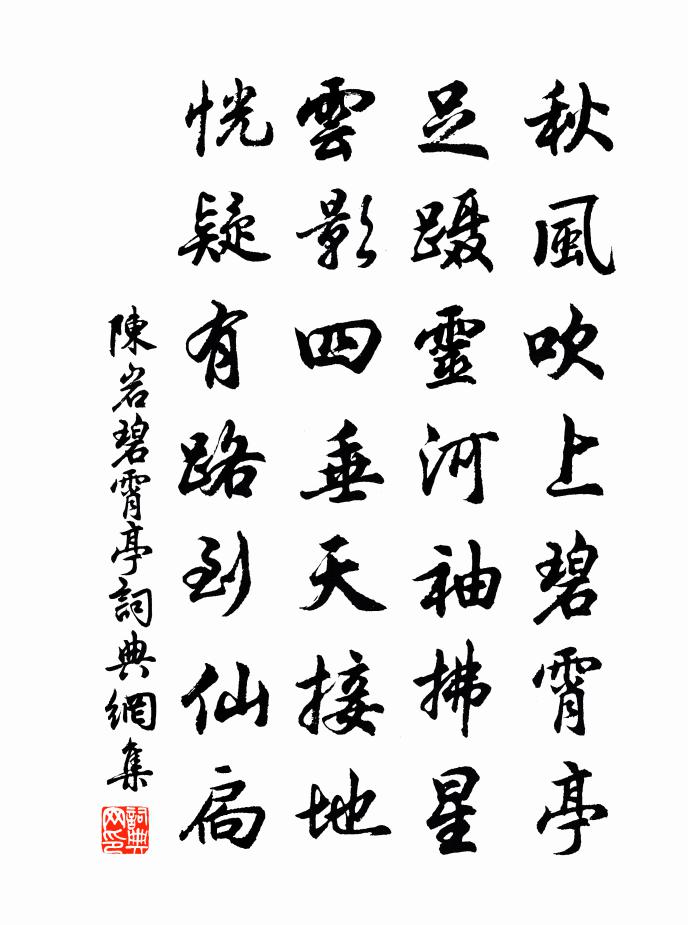 秋風吹上碧霄亭
足蹑靈河袖拂星
雲影四垂天接地
恍疑有路到仙扃
陳岩碧霄亭詞典網集
詞典
网印